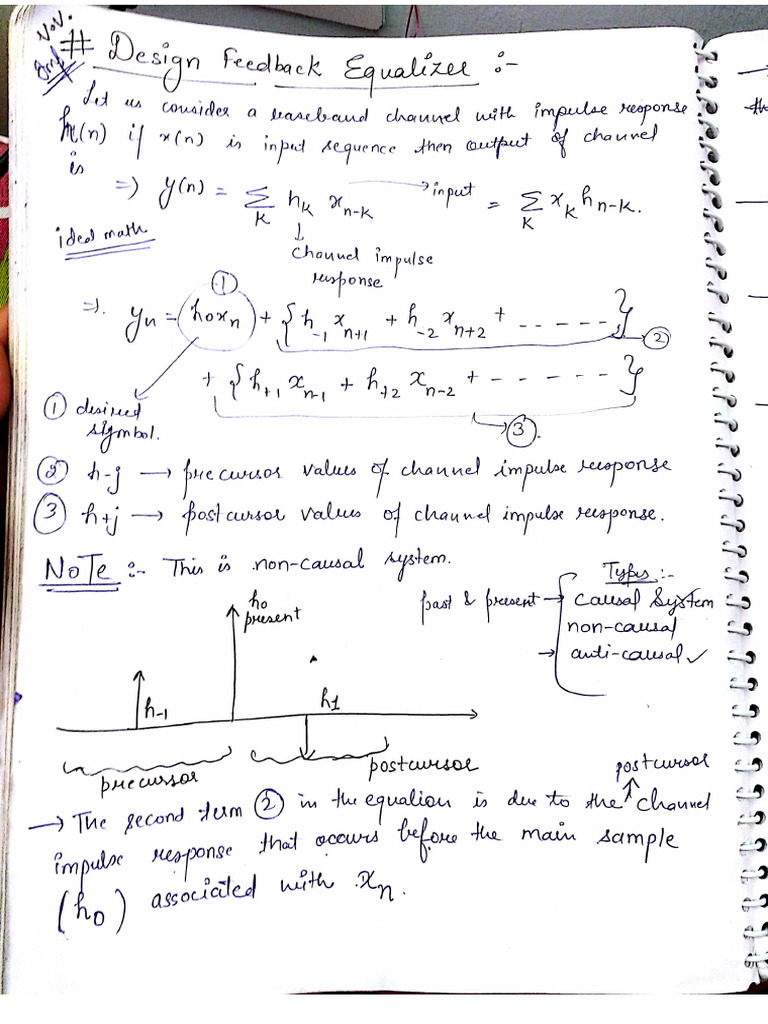 Nov.
# Design Feedback Equalizer :-
Let us consider a baseband channel with impulse response
h(n) if x(n) is input sequence then output of channel
is
⇒ y(n) = Σ_K h_K x_{n-K} → input = Σ_K x_K h_{n-K}.
ideal math
↓
channel impulse
response
①
⇒ y_n = (h0x_n) + { h_{-1} x_{n+1} + h_{-2} x_{n+2} + ------ } ②
+ { h_{+1} x_{n-1} + h_{+2} x_{n-2} + ------ }
→ ③.
① desired
symbol.
② h-j → precursor values of channel impulse response
③ h+j → postcursor values of channel impulse response.
NOTE :- This is non-causal system.
Types :-
past & present → causal system
non-causal
→ anti-causal ✓
h0
present
h-1
h1
precursor
postcursor
postcursor
→ The second term ② in the equation is due to the ↑ channel
impulse response that occurs before the main sample
(h0) associated with x_n.